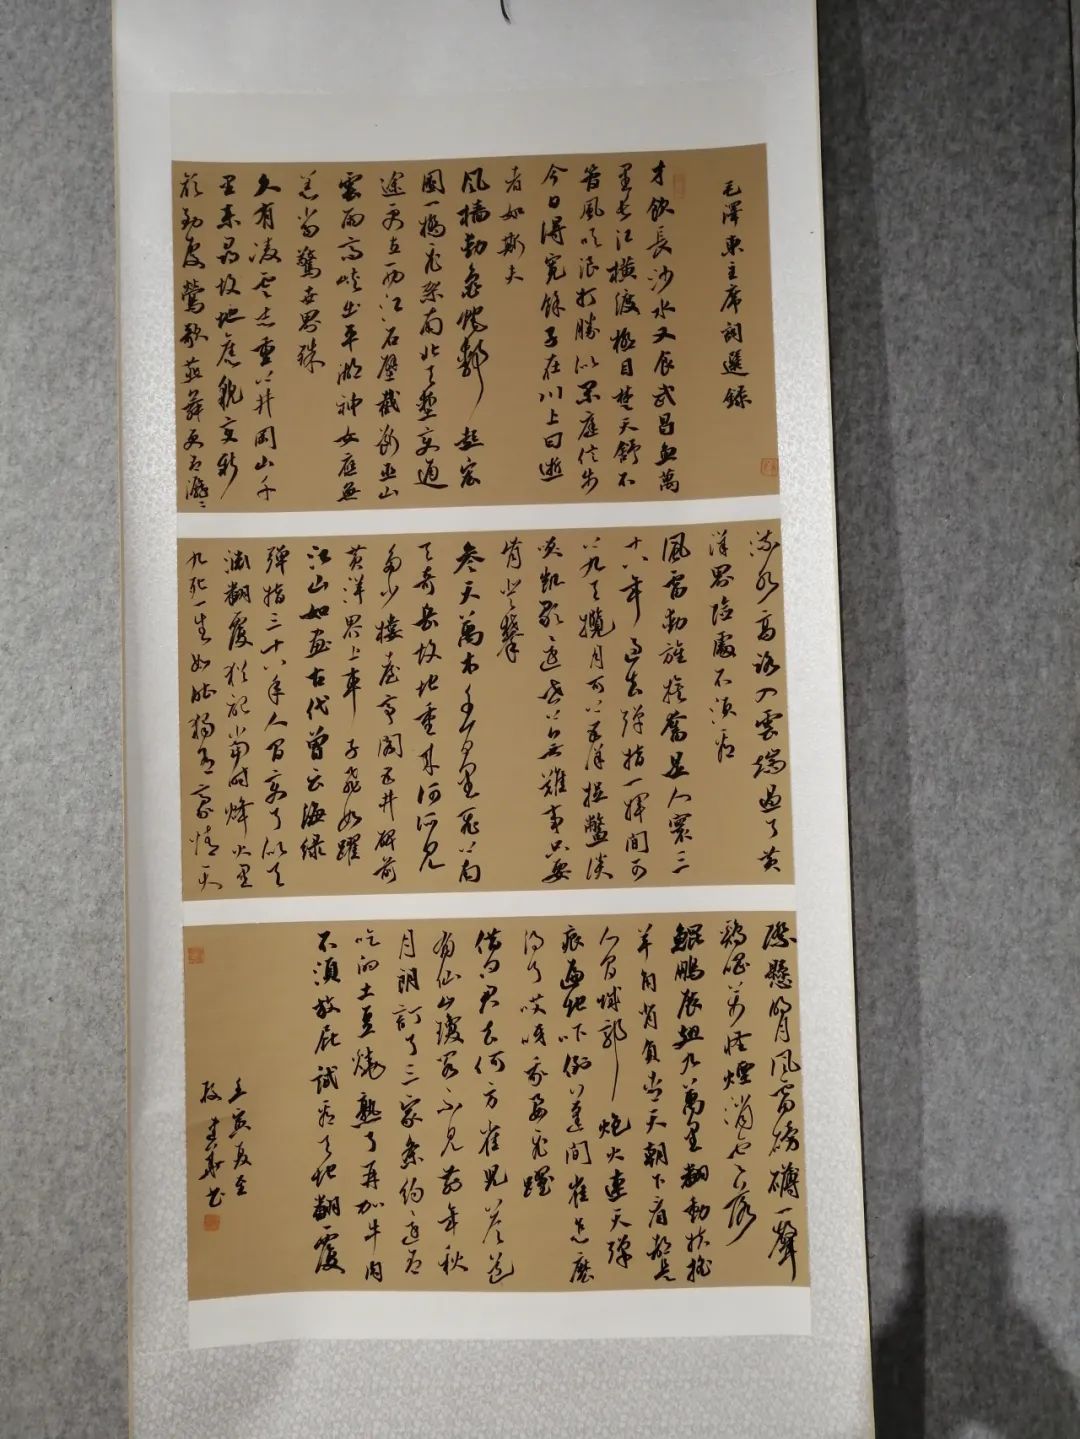 毛澤東主席詞選錄
才飲長沙水又食武昌魚萬
里長江橫渡極目楚天舒不
管風吹浪打勝似閑庭信步
今日得寬餘子在川上曰逝
者如斯夫
風檣動龜蛇靜起宏
圖一橋飛架南北天塹變通
途更立西江石壁截斷巫山
雲雨高峽出平湖神女應無
恙當驚世界殊
久有凌雲志重上井岡山千
里來尋故地舊貌變新
顏到處鶯歌燕舞更有潺潺
流水高路入雲端過了黃
洋界險處不須看
風雷動旌旗奮是人寰三
十八年過去彈指一揮間可
上九天攬月可下五洋捉鱉談
笑凱歌還世上無難事只要
肯登攀
參天萬木千百里飛上南
天奇岳故地重來何所見
多少樓臺亭閣五井碑前
黃洋界上車子飛如躍
江山如畫古代曾云海綠
彈指三十八年人間變了似天
淵翻覆猶記當時烽火里
九死一生如昨獨有豪情天
際懸明月風雷磅礴一聲
雞唱萬怪煙消雲落
鯤鵬展翅九萬里翻動扶搖
羊角背負青天朝下看都是
人間城郭炮火連天彈
痕遍地嚇倒蓬間雀怎麼
得了哎呀我要飛躍
借問君去何方雀兒答道
有仙山瓊閣不見前年秋
月朗訂了三家條約還有
吃的土豆燒熟了再加牛肉
不須放屁試看天地翻覆
壬寅夏至
書